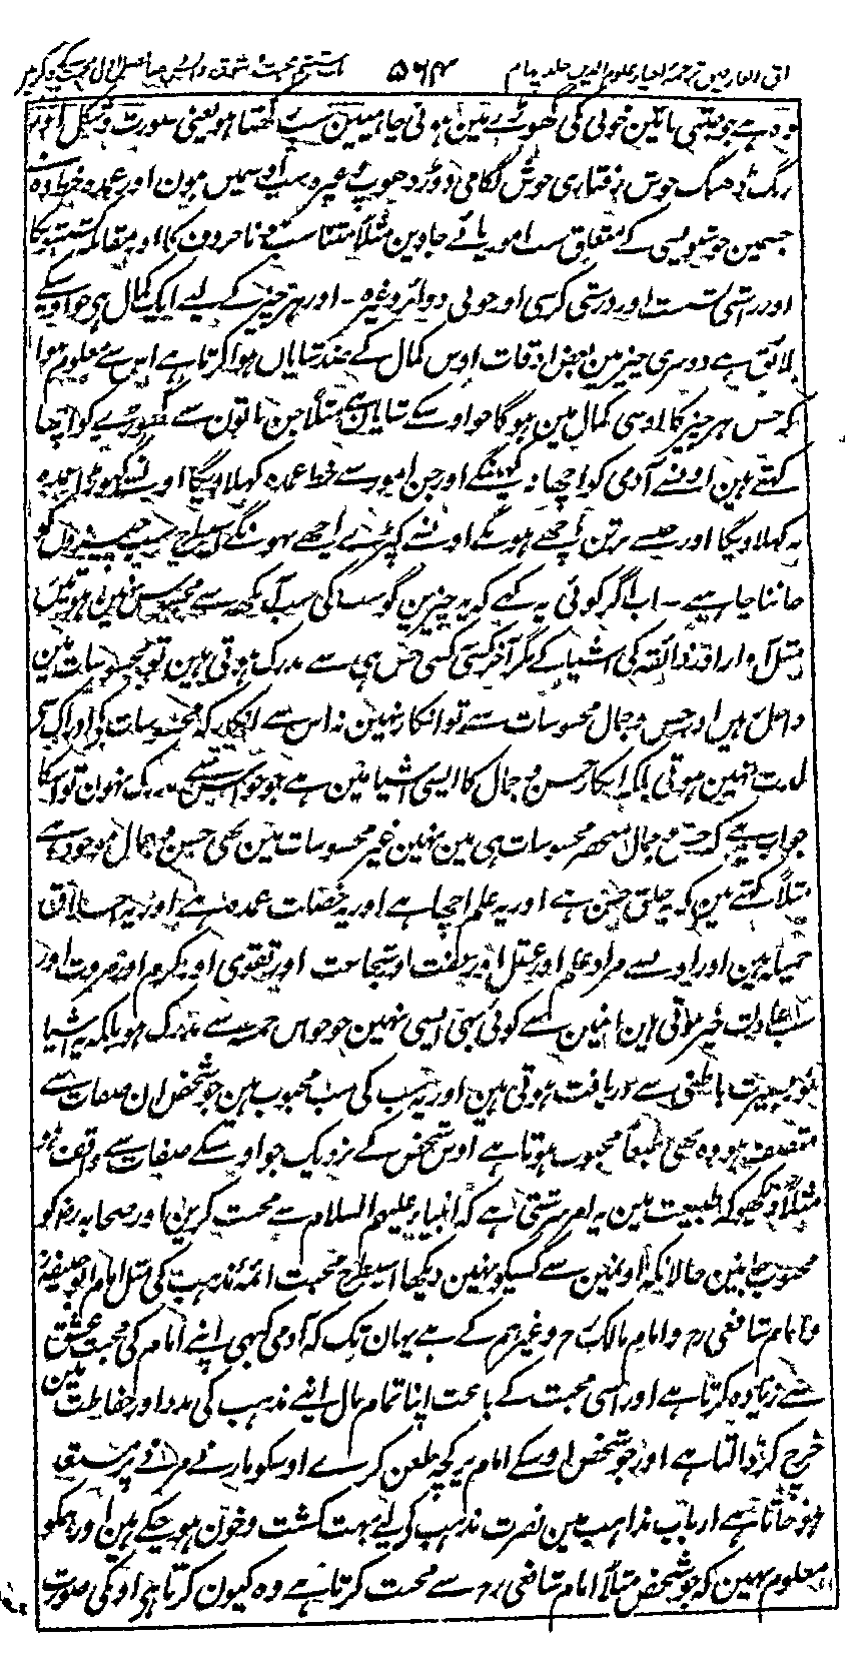 مذاق العارفین ترجمہ احیاء علوم الدین جلد چہارم ۵۶۴
وہ ہے جو جتنی باتین خوبی کی گھوڑے مین ہونی چاہئیں سب رکھتا ہو یعنی صورت و شکل اور
رنگ ڈھنگ خوش رفتاری خوش لگامی دوڑ دھوپ وغیرہ سب اوسمیں ہون اور عمدہ خط وہ ہے
جسمین خوشنویسی کے متعلق سب امور پائے جاوین مثلاً متناسب ہونا حردون کا اور مقابلہ
اور راستی نشست اور درستی کرسی اور خوبی دوائر وغیرہ - اور ہر چیز کے لیے ایک کمال ہی جو اوسکے
لائق ہے دوسری چیز مین بعض اوقات اوس کمال کے ضد شایاں ہوا کرتا ہے اس سے معلوم ہوا
کہ حسن ہر چیز کا اوسی کمال مین ہو گا جو اوسکے شایان ہے مثلاً جن باتون سے گھوڑے کو اچھا
کہتے ہین اونسے آدمی کو اچھا نہ کہینگے اور جن امور سے خط عمدہ کہلاویگا اونسے گھوڑا عمدہ
نہ کہلاویگا اور جسے برتن اچھے ہونگے اونسے کپڑے اچھے نہونگے اسیطرح سب چیزوں کو
جاننا چاہیے - اب اگر کوئی یہ کہے کہ یہ چیزین گو سب کی سب آنکھ سے محسوس نہین ہوتین
مثل آواز اور ذائقہ کی اشیا کے مگر آخر کسی کسی حس ہی سے مدرک ہوتی ہین تو محسوسات مین
داخل ہیں اور حسن و جمال محسوسات سے تو انکار نہین نہ اس سے انکار کہ محسوسات کی ادراک سے
لذت نہین ہوتی بلکہ انکار حسن و جمال کا ایسی اشیا مین ہے جو حواس سے مدرک نہون تو اسکا
جواب یہ ہے کہ حسن و جمال منحصر محسوسات ہی مین نہین غیر محسوسات مین بھی حسن و جمال موجود ہے
مثلاً کہتے ہین کہ یہ خلق حسن ہے اور یہ علم اچھا ہے اور یہ خصلت عمدہ ہے اور یہ اخلاق
جمیلہ ہین اور اون سے مراد علم اور عقل اور عفت اور شجاعت اور تقوی اور کرم اور مروت اور
سب عادات خیر ہوتی ہین انمین سے کوئی بھی ایسی نہین جو حواس خمسہ سے مدرک ہو بلکہ یہ اشیا
نور بصیرت باطنی سے دریافت ہوتی ہین اور یہ سب کی سب محبوب ہین جو شخص ان صفات سے
متصف ہو وہ بھی طبعاً محبوب ہوتا ہے اوس شخص کے نزدیک جو اوسکے صفات سے واقف ہو
مثلاً دیکھو کہ طبیعت مین یہ امر سرشتی ہے کہ انبیاء علیہم السلام سے محبت کرین اور صحابہ رض کو
محبوب جانین حالانکہ اونمین سے کسیکو نہین دیکھا اسیطرح محبت ائمہ مذہب کی مثل امام ابو حنیفہ رح
و امام شافعی رح و امام مالک رح وغیرہم کے ہے یہان تک کہ آدمی کبھی اپنے امام کی محبت عشق
سے زیادہ کرتا ہے اور اسی محبت کے باعث اپنا تمام مال اپنے مذہب کی مدد اور حفاظت مین
خرچ کر ڈالتا ہے اور جو شخص اوسکے امام پر کچھ طعن کرے اوسکو مارنے مرنے پر مستعد
ہو جاتا ہے ارباب مذاہب مین نصرت مذہب کے لیے بہت کشت و خون ہو چکے ہین اور ہمکو
معلوم نہین کہ جو شخص مثلاً امام شافعی رح سے محبت کرتا ہے وہ کیون کرتا ہی اونکی صورت